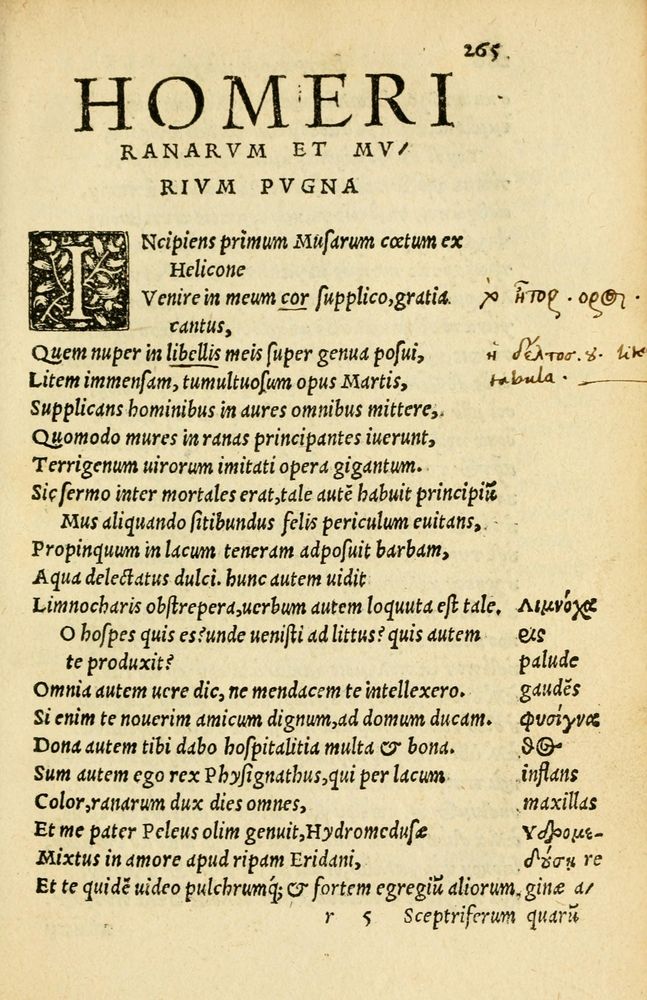 265
HOMERI
RANARVM ET MV/
RIVM PVGNA
INcipiens primum Musarum cœtum ex
Helicone
Venire in meum cor supplico, gratia
cantus,
Quem nuper in libellis meis super genua posui,
Litem immensam, tumultuosum opus Martis,
Supplicans hominibus in aures omnibus mittere,
Quomodo mures in ranas principantes iuerunt,
Terrigenum uirorum imitati opera gigantum.
Sic sermo inter mortales erat, tale autē habuit principiū
Mus aliquando sitibundus felis periculum euitans,
Propinquum in lacum teneram adposuit barbam,
Aqua delectatus dulci. hunc autem uidit
Limnocharis obstrepera, uerbum autem loquuta est tale.
O hospes quis es? unde uenisti ad littus? quis autem
te produxit?
Omnia autem uere dic, ne mendacem te intellexero.
Si enim te nouerim amicum dignum, ad domum ducam.
Dona autem tibi dabo hospitalitia multa & bona.
Sum autem ego rex Physignathus, qui per lacum
Color, ranarum dux dies omnes,
Et me pater Peleus olim genuit, Hydromedusæ
Mixtus in amore apud ripam Eridani,
Et te quidē uideo pulchrumq; & fortem egregiū aliorum,
ἦτορ.
ἡ δέλτος.
tabula.
Λιμνόχα
ρις
palude
gaudēs
φυσίγνα
θος
inflans
maxillas
Υδρομε-
δούση re
ginæ a/
r 5 Sceptriferum quarū